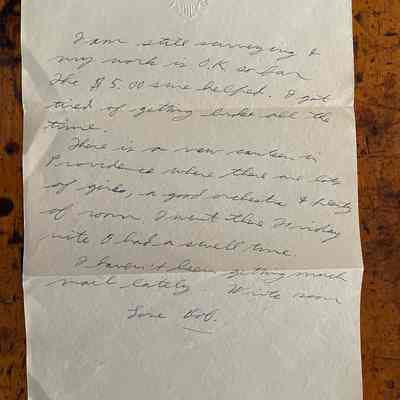 I am still surveying &
my work is O.K. so far
The $5.00 sure helped. I got
tired of getting broke all the
time.
There is a new canteen in
Providence where there are lots
of girls, a good orchestra & plenty
of room I went there Friday
nite & had a swell time.
I haven't been getting much
mail lately Write soon
Love Bob.